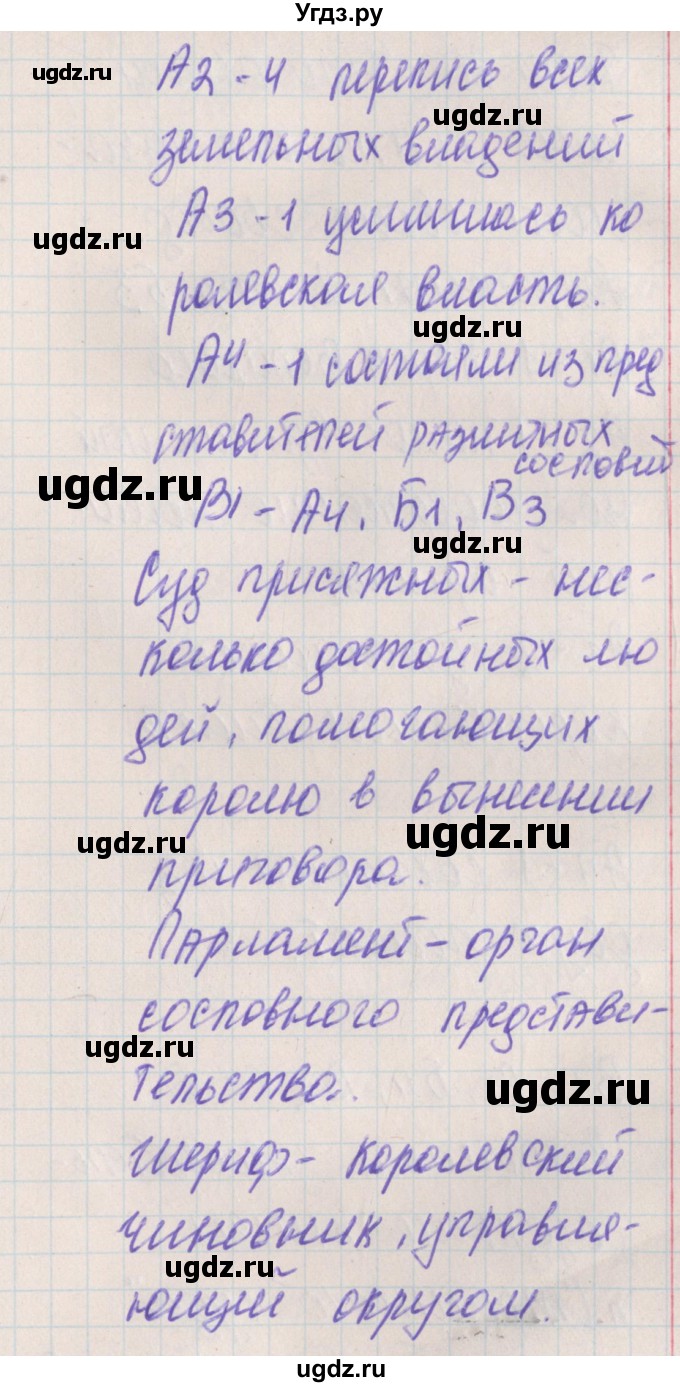 Угдз.ру
ugdz.ru
А2 - 4 перепись всех
ugdz.ru
земельных владений
А3 - 1 усилилась ко
ugdz.ru
ролевская власть.
ugdz.ru
А4 - 1 состояли из пред
ставителей различных
сословий
ugdz.ru
В1 - А4, Б1, В3
ugdz.ru
Суд присяжных - нес-
колько достойных лю
дей, помогающих
королю в вынесении
ugdz.ru
ugdz.ru
приговора.
Парламент - орган
сословного представи-
ugdz.ru
тельства.
ugdz.ru
Шериф - королевский
чиновник, управля-
ugdz.ru
ющий округом.
ugdz.ru